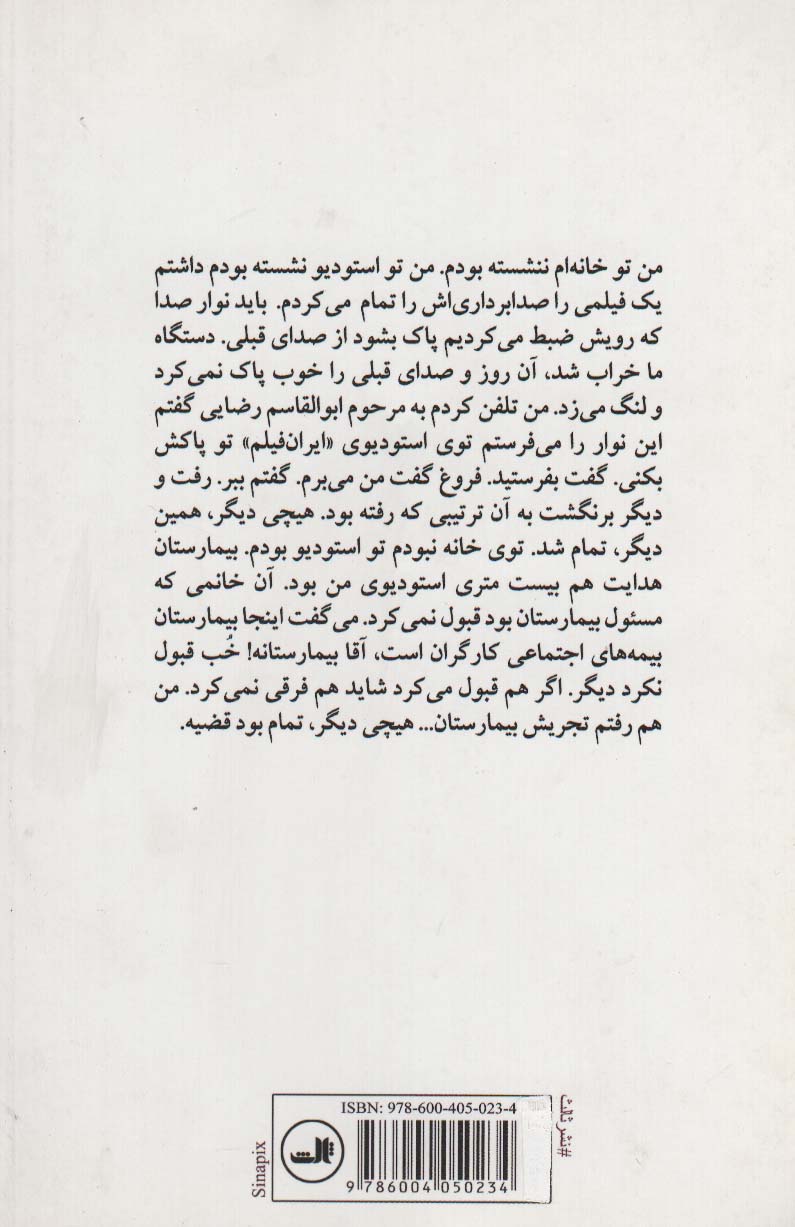 من تو خانه‌ام ننشسته بودم. من تو استودیو نشسته بودم داشتم
یک فیلمی را صدابرداری‌اش را تمام می‌کردم. باید نوار صدا
که رویش ضبط می‌کردیم پاک بشود از صدای قبلی. دستگاه
ما خراب شد، آن روز و صدای قبلی را خوب پاک نمی‌کرد
و لنگ می‌زد. من تلفن کردم به مرحوم ابوالقاسم رضایی گفتم
این نوار را می‌فرستم توی استودیوی «ایران‌فیلم» تو پاکش
بکنی. گفت بفرستید. فروغ گفت من می‌برم. گفتم ببر. رفت و
دیگر برنگشت به آن ترتیبی که رفته بود. هیچی دیگر، همین
دیگر، تمام شد. توی خانه نبودم تو استودیو بودم. بیمارستان
هدایت هم بیست متری استودیوی من بود. آن خانمی که
مسئول بیمارستان بود قبول نمی‌کرد. می‌گفت اینجا بیمارستان
بیمه‌های اجتماعی کارگران است، آقا بیمارستانه! خُب قبول
نکرد دیگر. اگر هم قبول می‌کرد شاید هم فرقی نمی‌کرد. من
هم رفتم تجریش بیمارستان... هیچی دیگر، تمام بود قضیه.
ISBN: 978-600-405-023-4
ثالث
9 786004 050234
#نشر ثالث
Sinapix